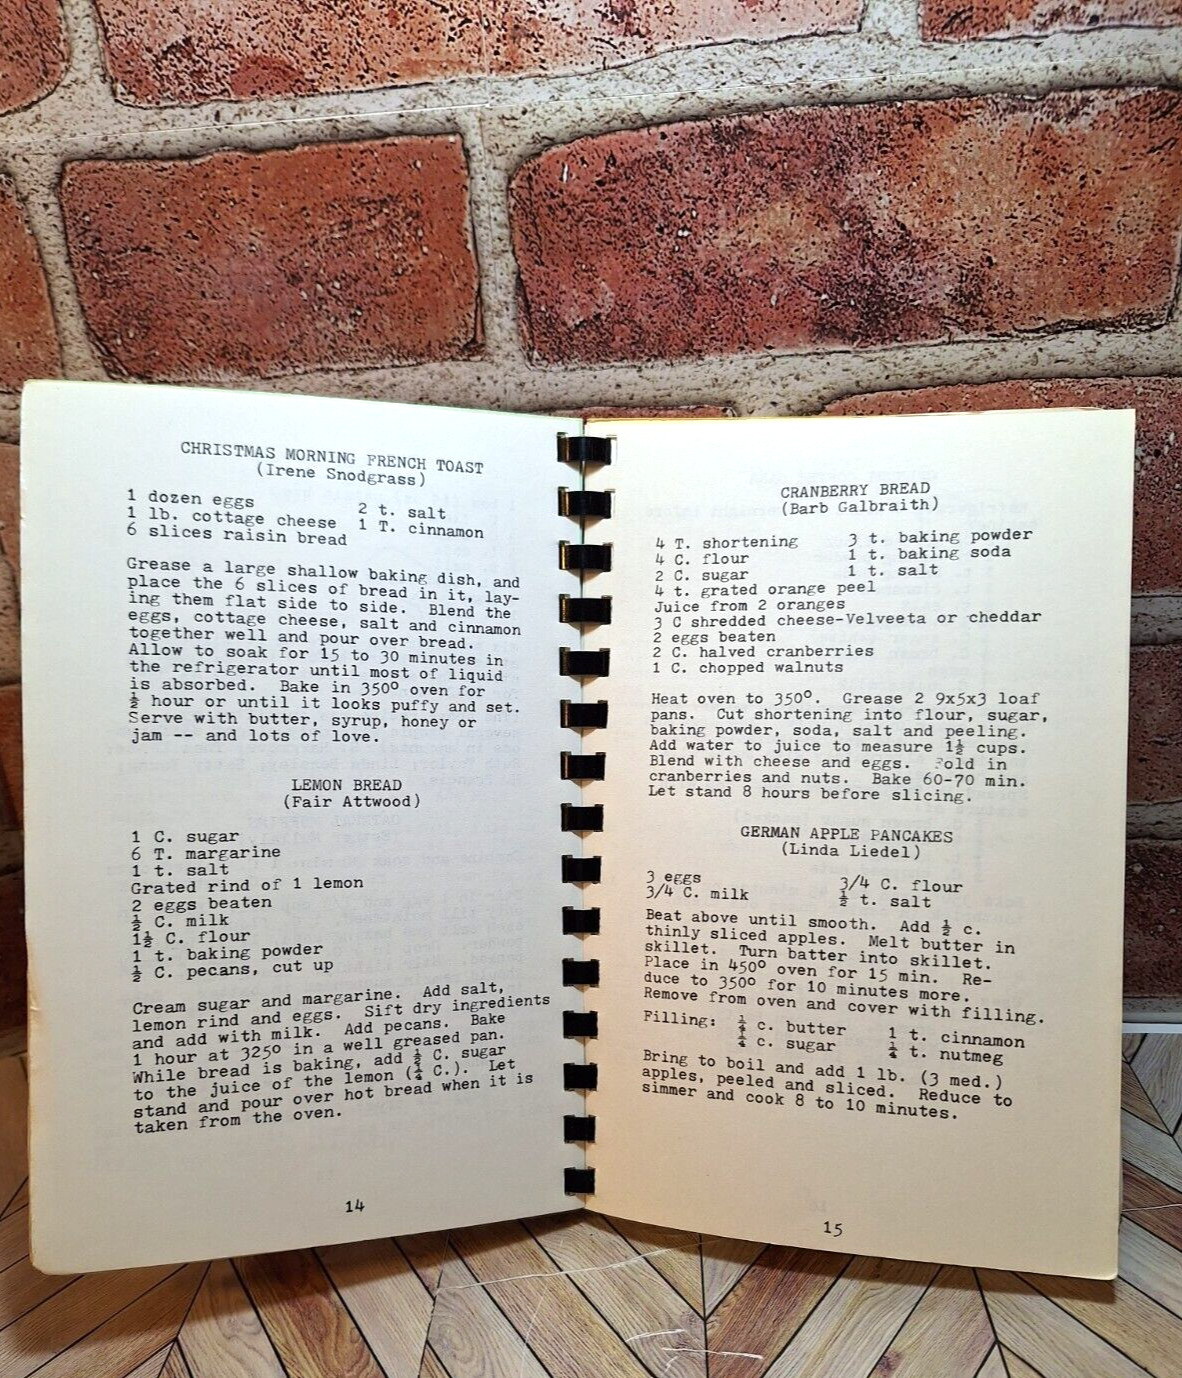 CHRISTMAS MORNING FRENCH TOAST
(Irene Snodgrass)
1 dozen eggs 2 t. salt
1 lb. cottage cheese 1 T. cinnamon
6 slices raisin bread
Grease a large shallow baking dish, and
place the 6 slices of bread in it, lay-
ing them flat side to side. Blend the
eggs, cottage cheese, salt and cinnamon
together well and pour over bread.
Allow to soak for 15 to 30 minutes in
the refrigerator until most of liquid
is absorbed. Bake in 350° oven for
½ hour or until it looks puffy and set.
Serve with butter, syrup, honey or
jam -- and lots of love.
LEMON BREAD
(Fair Attwood)
1 C. sugar
6 T. margarine
1 t. salt
Grated rind of 1 lemon
2 eggs beaten
½ C. milk
1½ C. flour
1 t. baking powder
½ C. pecans, cut up
Cream sugar and margarine. Add salt,
lemon rind and eggs. Sift dry ingredients
and add with milk. Add pecans. Bake
1 hour at 325° in a well greased pan.
While bread is baking, add ½ C. sugar
to the juice of the lemon (¼ C.). Let
stand and pour over hot bread when it is
taken from the oven.
14
CRANBERRY BREAD
(Barb Galbraith)
4 T. shortening 3 t. baking powder
4 C. flour 1 t. baking soda
2 C. sugar 1 t. salt
4 t. grated orange peel
Juice from 2 oranges
3 C shredded cheese-Velveeta or cheddar
2 eggs beaten
2 C. halved cranberries
1 C. chopped walnuts
Heat oven to 350°. Grease 2 9x5x3 loaf
pans. Cut shortening into flour, sugar,
baking powder, soda, salt and peeling.
Add water to juice to measure 1½ cups.
Blend with cheese and eggs. Fold in
cranberries and nuts. Bake 60-70 min.
Let stand 8 hours before slicing.
GERMAN APPLE PANCAKES
(Linda Liedel)
3 eggs 3/4 C. flour
3/4 C. milk ½ t. salt
Beat above until smooth. Add ½ c.
thinly sliced apples. Melt butter in
skillet. Turn batter into skillet.
Place in 450° oven for 15 min. Re-
duce to 350° for 10 minutes more.
Remove from oven and cover with filling.
Filling: ¼ c. butter 1 t. cinnamon
¼ c. sugar ¼ t. nutmeg
Bring to boil and add 1 lb. (3 med.)
apples, peeled and sliced. Reduce to
simmer and cook 8 to 10 minutes.
15